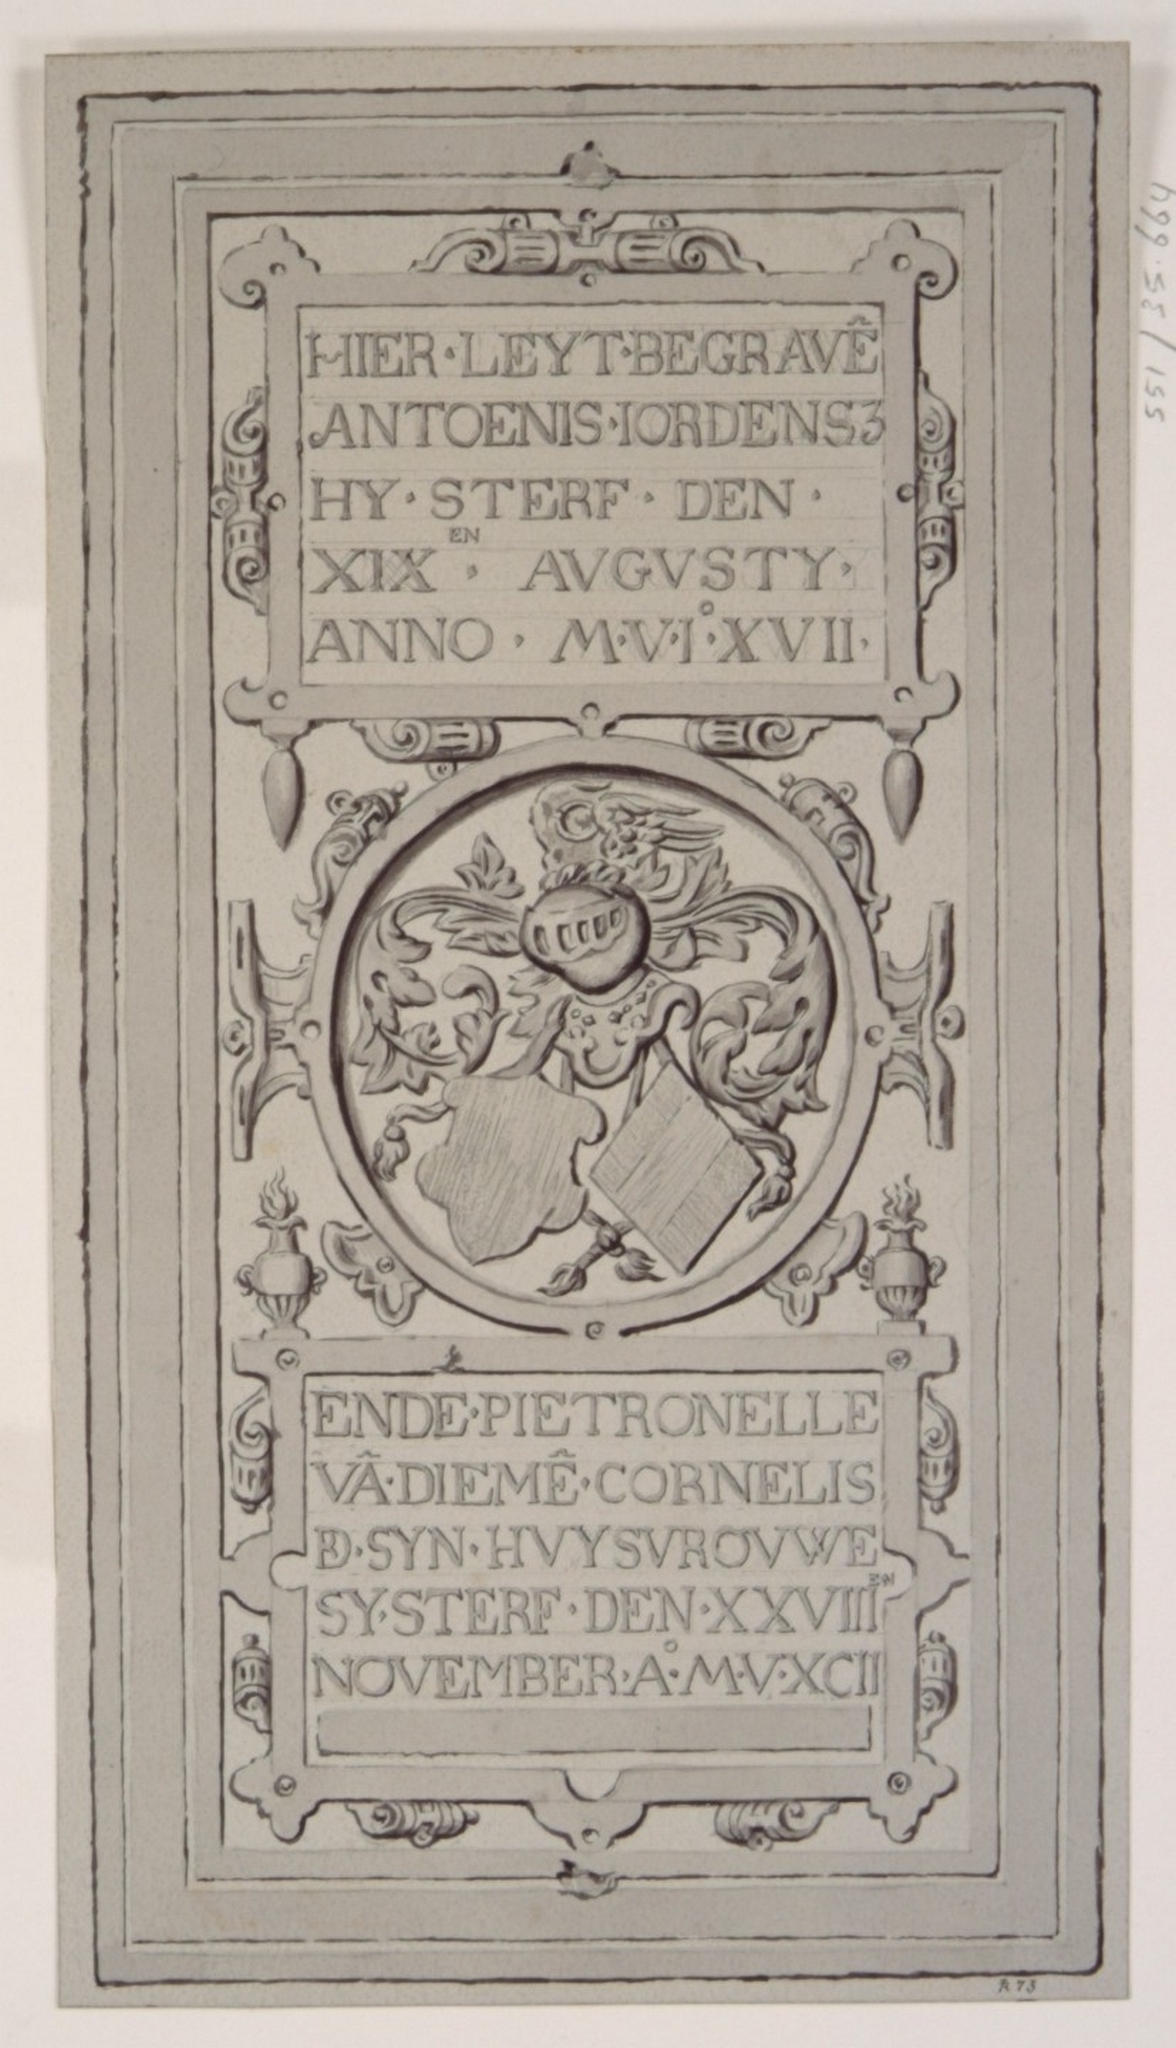 HIER·LEYT·BEGRAVE͂
ANTOENIS·IORDENSꝫ
HY·STERF·DEN·
XIX EN · AVGVSTY·
ANNO · M·V·I°·XVII·
ENDE·PIETRONELLE
VÂ·DIEMÊ·CORNELIS
SYN·HVYSVROVWE
SY·STERF·DEN·XXVIII EN
NOVEMBER·A°·M·V·XCII
R 73
551/35.664